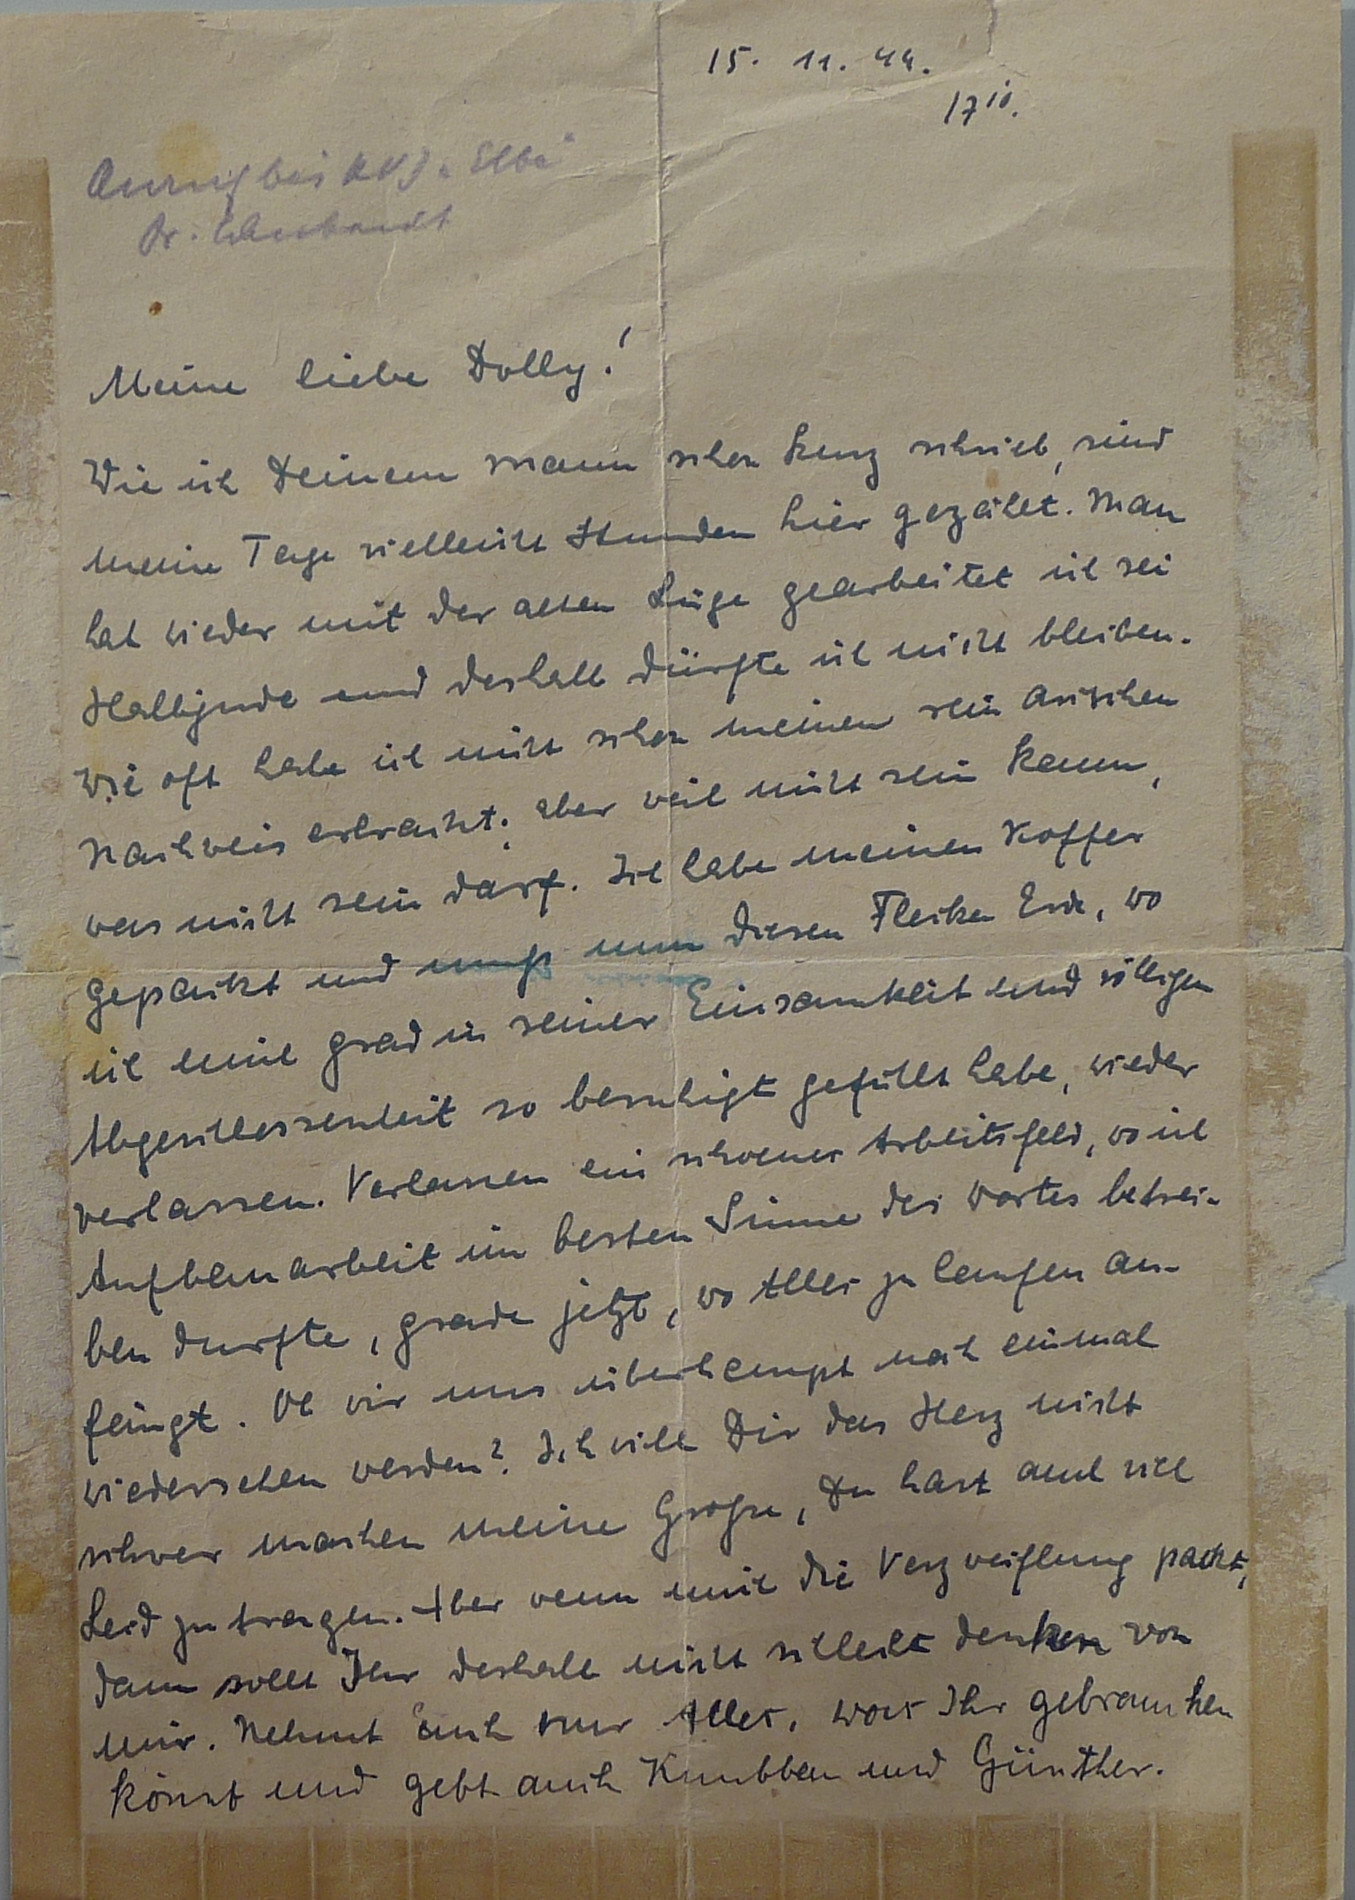 15. 11. 44.
17¹⁰.
Anruf bei Elbe
Dr.
Meine liebe Dolly!
Wie ich Deinem Mann schon kurz schrieb, sind
meine Tage vielleicht Stunden hier gezählt. Man
hat wieder mit der alten Lüge gearbeitet ich sei
Halbjude und deshalb dürfte ich nicht bleiben.
Wie oft habe ich nicht schon meinen rein arischen
Nachweis erbracht. Aber weil nicht sein kann,
was nicht sein darf. Ich habe meinen Koffer
gepackt und muß nun diesen Flecken Erde, wo
ich mich grad in seiner Einsamkeit und völligen
Abgeschlossenheit so beruhigt gefühlt habe, wieder
verlassen. Verlassen ein schoenes Arbeitsfeld, wo ich
Aufbauarbeit im besten Sinne des Wortes betrei-
ben durfte, grade jetzt, wo Alles zu laufen an-
fängt. Ob wir uns überhaupt noch einmal
wiedersehen werden? Ich will Dir das Herz nicht
schwer machen meine Große, Du hast auch viel
Leid zu tragen. Aber wenn mich die Verzweiflung packt,
dann sollt Ihr deshalb nicht schlecht denken von
mir. Nehmt Euch nur Alles, was Ihr gebrauchen
könnt und gebt auch Knubben und Günther.